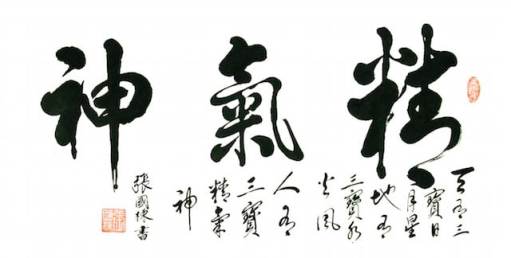 精氣神
天有三
寶日
月星
地有
三寶水
火風
人有
三寶
精氣
神
張國書